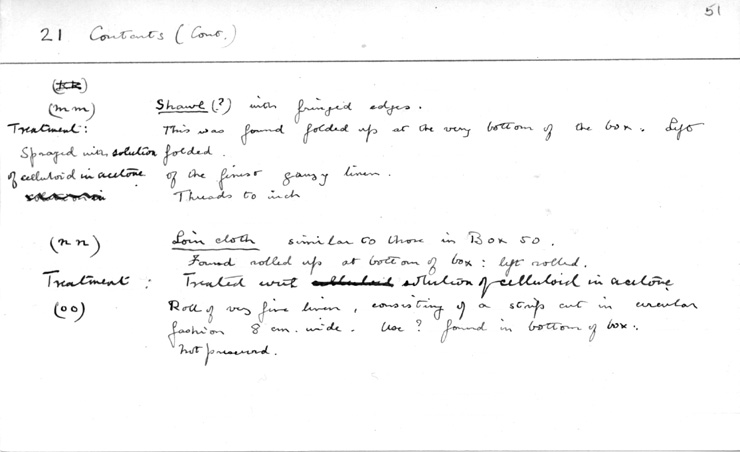 51
21 Contents (Cont.)
(mm) Shawl (?) with fringed edges.
Treatment: This was found folded up at the very bottom of the box. Left
Sprayed with solution folded.
of celluloid in acetone of the finest gauzy linen.
Threads to inch
(nn) Loin cloth similar to those in Box 50.
Found rolled up at bottom of box: left rolled.
Treatment: Treated with solution of celluloid in acetone
(oo) Roll of very fine linen, consisting of a strip cut in circular
fashion 8 cm. wide. Use? Found in bottom of box.
Not preserved.